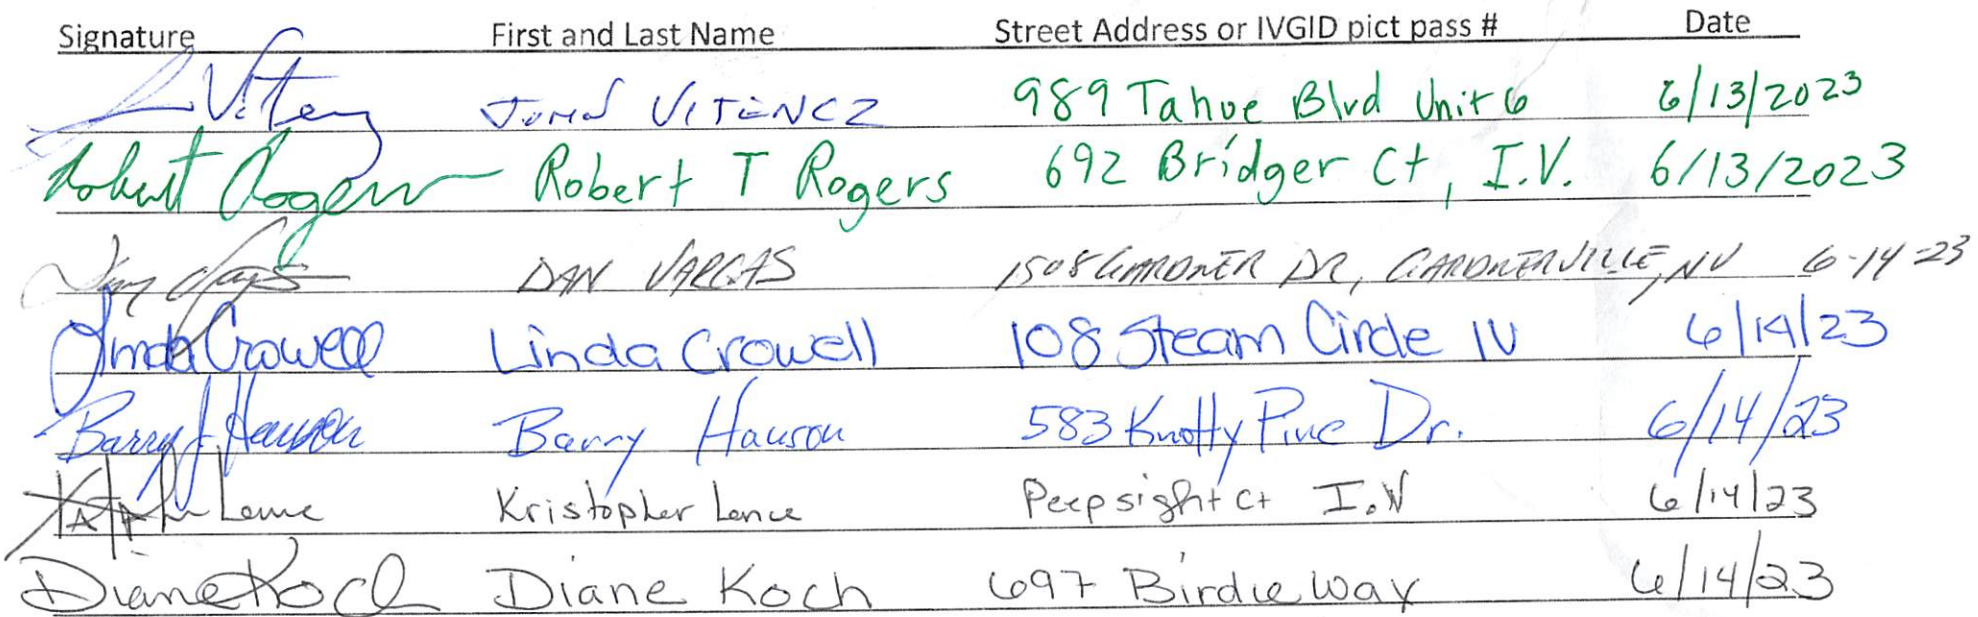 Signature First and Last Name Street Address or IVGID pict pass # Date
JOHN VITENCZ 989 Tahoe Blvd Unit 6 6/13/2023
Robert Rogers Robert T Rogers 692 Bridger Ct, I.V. 6/13/2023
DAN VARGAS 1508 GARDNER DR, GARDNERVILLE, NV 6-14-23
Linda Crowell Linda Crowell 108 Steam Circle IV 6/14/23
Barry J Hauson Barry Hauson 583 Knotty Pine Dr. 6/14/23
Lance Kristopher Lance Peepsight Ct I.V 6/14/23
Diane Koch Diane Koch 697 Birdie Way 6/14/23